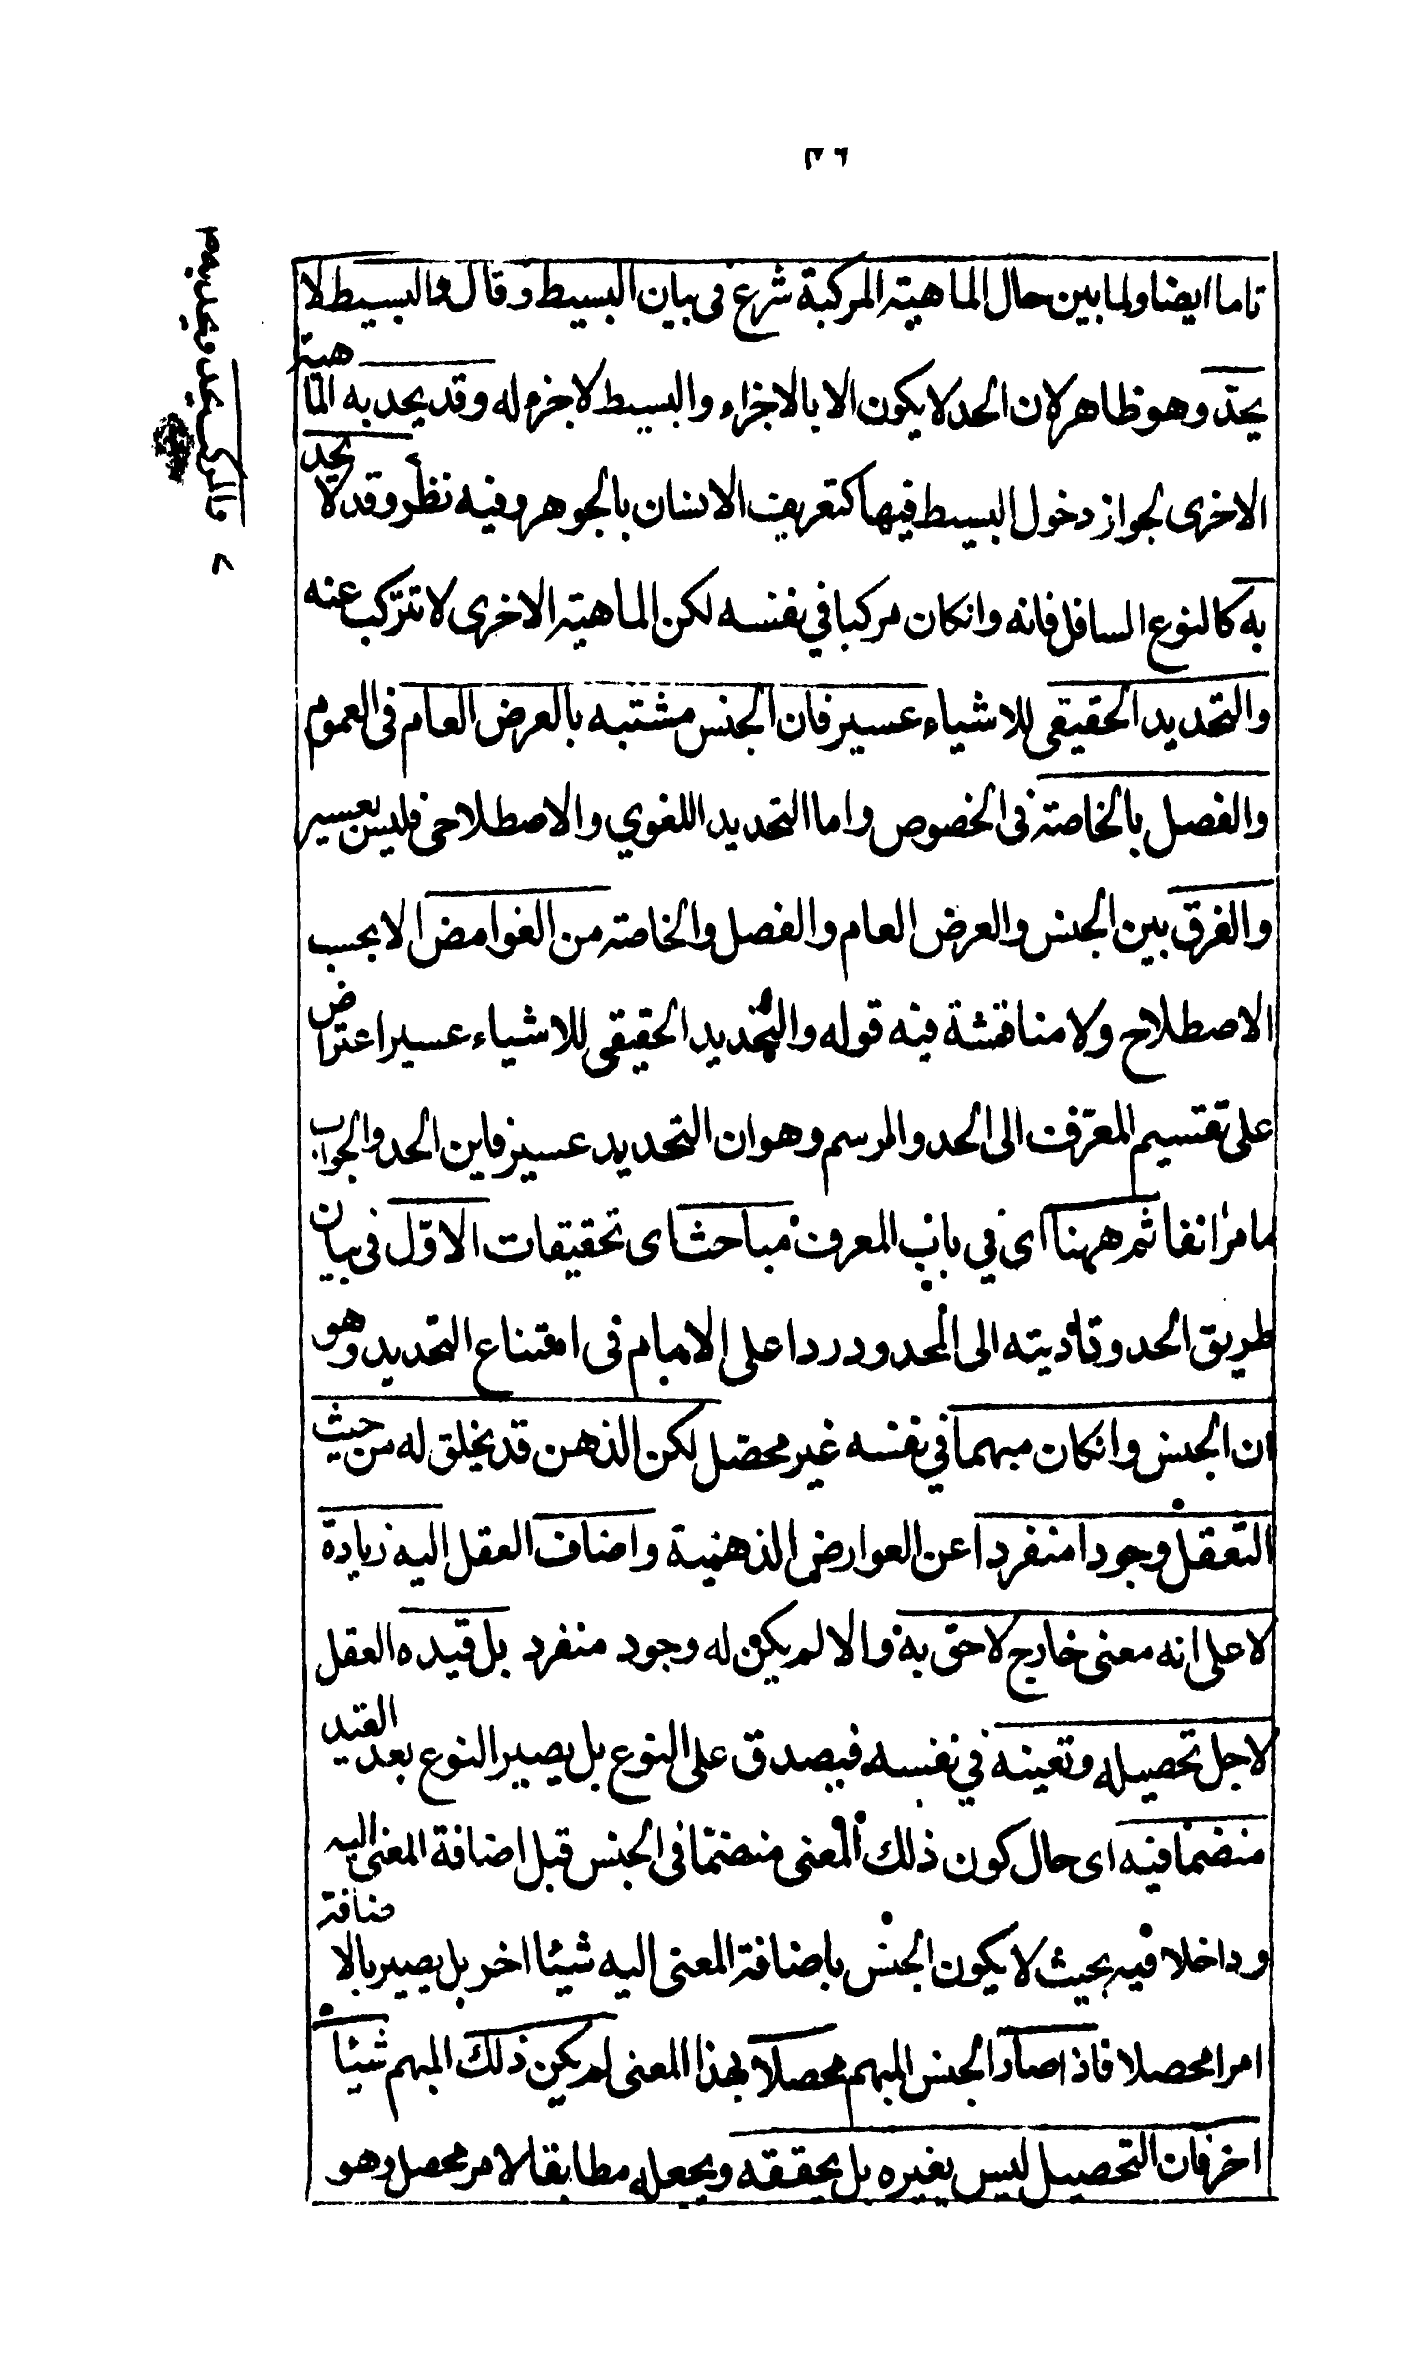 تاما ايضا ولما بين حال الماهية المركبة شرع فى بيان البسيط وقال والبسيط لا
يحدّ وهو ظاهر لان الحد لا يكون الا بالاجزاء والبسيط لا جزء له وقد يحد به الماهية
الاخرى لجواز دخول البسيط فيها كتعريف الانسان بالجوهر وفيه نظر وقد لا يحد
به كالنوع السافل فانه وانكان مركبا في نفسه لكن الماهية الاخرى لا تتركب عنه
والتحديد الحقيقى للاشياء عسير فان الجنس مشتبه بالعرض العام فى العموم
والفصل بالخاصة فى الخصوص واما التحديد اللغوي والاصطلاحى فليس بعسير
والفرق بين الجنس والعرض العام والفصل والخاصة من الغوامض الا بحسب
الاصطلاح ولا مناقشة فيه قوله والتحديد الحقيقى للاشياء عسير اعتراض
على تقسيم المعرّف الى الحد والرسم وهو ان التحديد عسير فاين الحد والجواب
مامر انفا ثم ههنا اى في باب المعرف مباحث اى تحقيقات الاوّل فى بيان
طريق الحد وتأديته الى المحدود ردا على الامام فى امتناع التحديد وهو
ان الجنس وانكان مبهما في نفسه غير محصّل لكن الذهن قد يخلق له من حيث
التعقل وجودا منفردا عن العوارض الذهنية واضاف العقل اليه زيادة
لا على انه معنى خارج لاحق به والا لم يكن له وجود منفرد بل قيده العقل
لاجل تحصيله وتعينه في نفسه فيصدق على النوع بل يصير النوع بعد القيد
منضما فيه اى حال كون ذلك المعنى منضمّا فى الجنس قبل اضافة المعنى اليه
وداخلا فيه بحيث لا يكون الجنس باضافة المعنى اليه شيئا اخر بل يصير بالاضافة
امرا محصلا فاذا صار الجنس المبهم محصلا بهذا المعنى لم يكن ذلك المبهم شيئا
اخر فان التحصيل ليس يغيره بل يحققه ويجعله مطابقا لامر محصل وهو
فالمركب يحد ويحد به